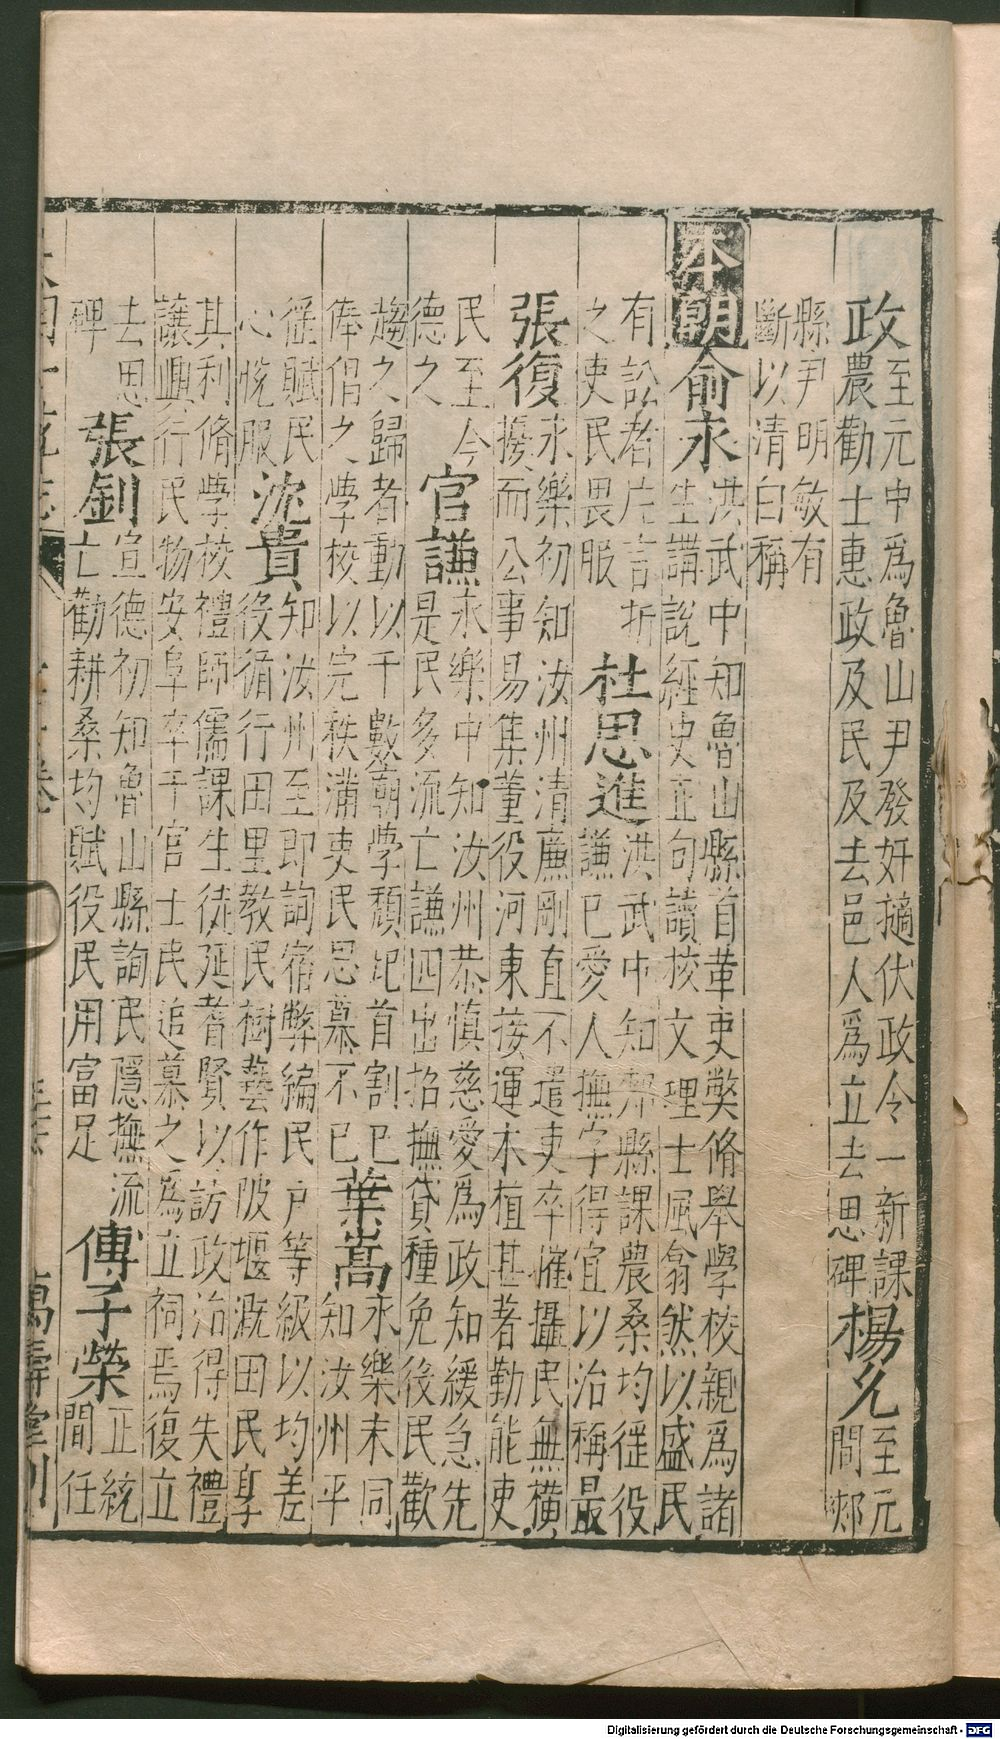 政至元中爲魯山尹發奸擿伏政令一新課
農勸士惠政及民及去邑人爲立去思碑楊允至元
間郟
縣尹明敏有
斷以清白稱
本朝俞永洪武中知魯山縣首革吏弊脩舉學校親爲諸
生講說經史正句讀挍文理士風翕然以盛民
有訟者片言折
之吏民畏服杜思進洪武中知郟縣課農桑均徭役
謙已愛人撫字得宜以治稱最
張復永樂初知汝州清廉剛直不遣吏卒催攝民無橫
擾而公事易集董役河東接運木植甚著勤能吏
民至今
德之官謙永樂中知汝州恭慎慈愛爲政知緩急先
是民多流亡謙四出招撫貸種免後民歡
趨之歸者動以千數葺學頹圮首割已
俸倡之學校以完秩滿吏民思慕不已葉嵩永樂末同
知汝州平
徭賦民
心悅服沈貴知汝州至即詢宿弊編民户等級以均差
役循行田里教民樹藝作陂堰溉田民享
其利脩學校禮師儒課生徒延耆賢以訪政治得失禮
讓興行民物安阜卒于官士民追慕之爲立祠焉復立
去思
碑張釗宣德初知魯山縣詢民隱撫流
亡勸耕桑均賦役民用富足傅子榮正統
間任
萬壽堂刊
Digitalisierung gefördert durch die Deutsche Forschungsgemeinschaft - DFG